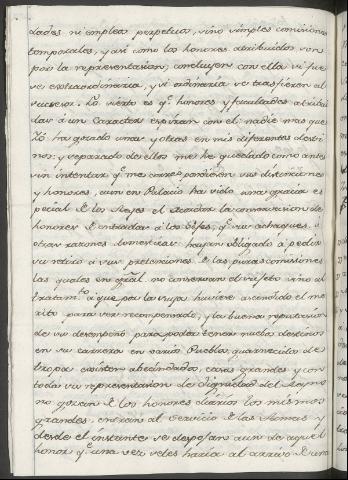 dades ni empleos perpetuos, sino simples comisiones
temporales, y así como los honores atribuidos son
por la representacion, concluyen con ella si fue
se extraordinaria, y si ordinaria se trasfieren al
sucesor. Lo cierto es qe. honores y facultades atribui
das a un Caracter espiran con el, nadie mas que
Yo ha gozado unas y otras en mis diferentes desti
nos; y separado de ellos me he quedado como antes
sin intentar qe. me correspondiesen sus distinciones
y honores, aun en Palacio ha sido una gracia es
pecial de los Reyes el acordar la conservacion de
honores de entradas a los Gefes, qe. sus achaques, ú
otras razones domesticas hayan obligado a pedir
su retiro a sus pretenciones. De las puras comisiones
las quales en gral. no conservan al sujeto sino al
tratamto. a que por la suya huviere ascendido el me
rito para ser recompensado, y la buena reputacion
de su desempeño para poder tener nuebos destinos
en su carrera en varios Pueblos, quarteles de
tropa existen abecindados, casas grandes y con
toda su representacion de Dignidad del Reyno
no gozan de los honores diarios los mismos
grandes, entran al servicio de las Armas y
desde el instante se despojan aun de aquel
honor qe. una vez veles haria al arrivo de una